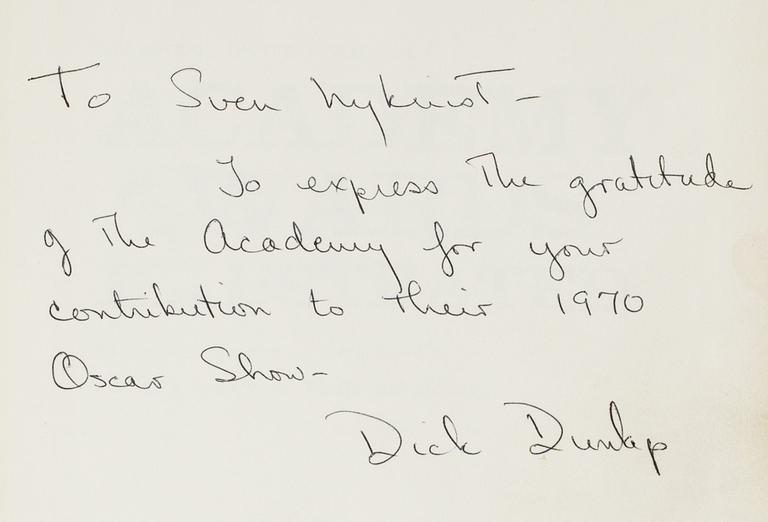 To Sven Nykvist -
To express the gratitude
of the Academy for your
contribution to their 1970
Oscar Show -
Dick Dunlap